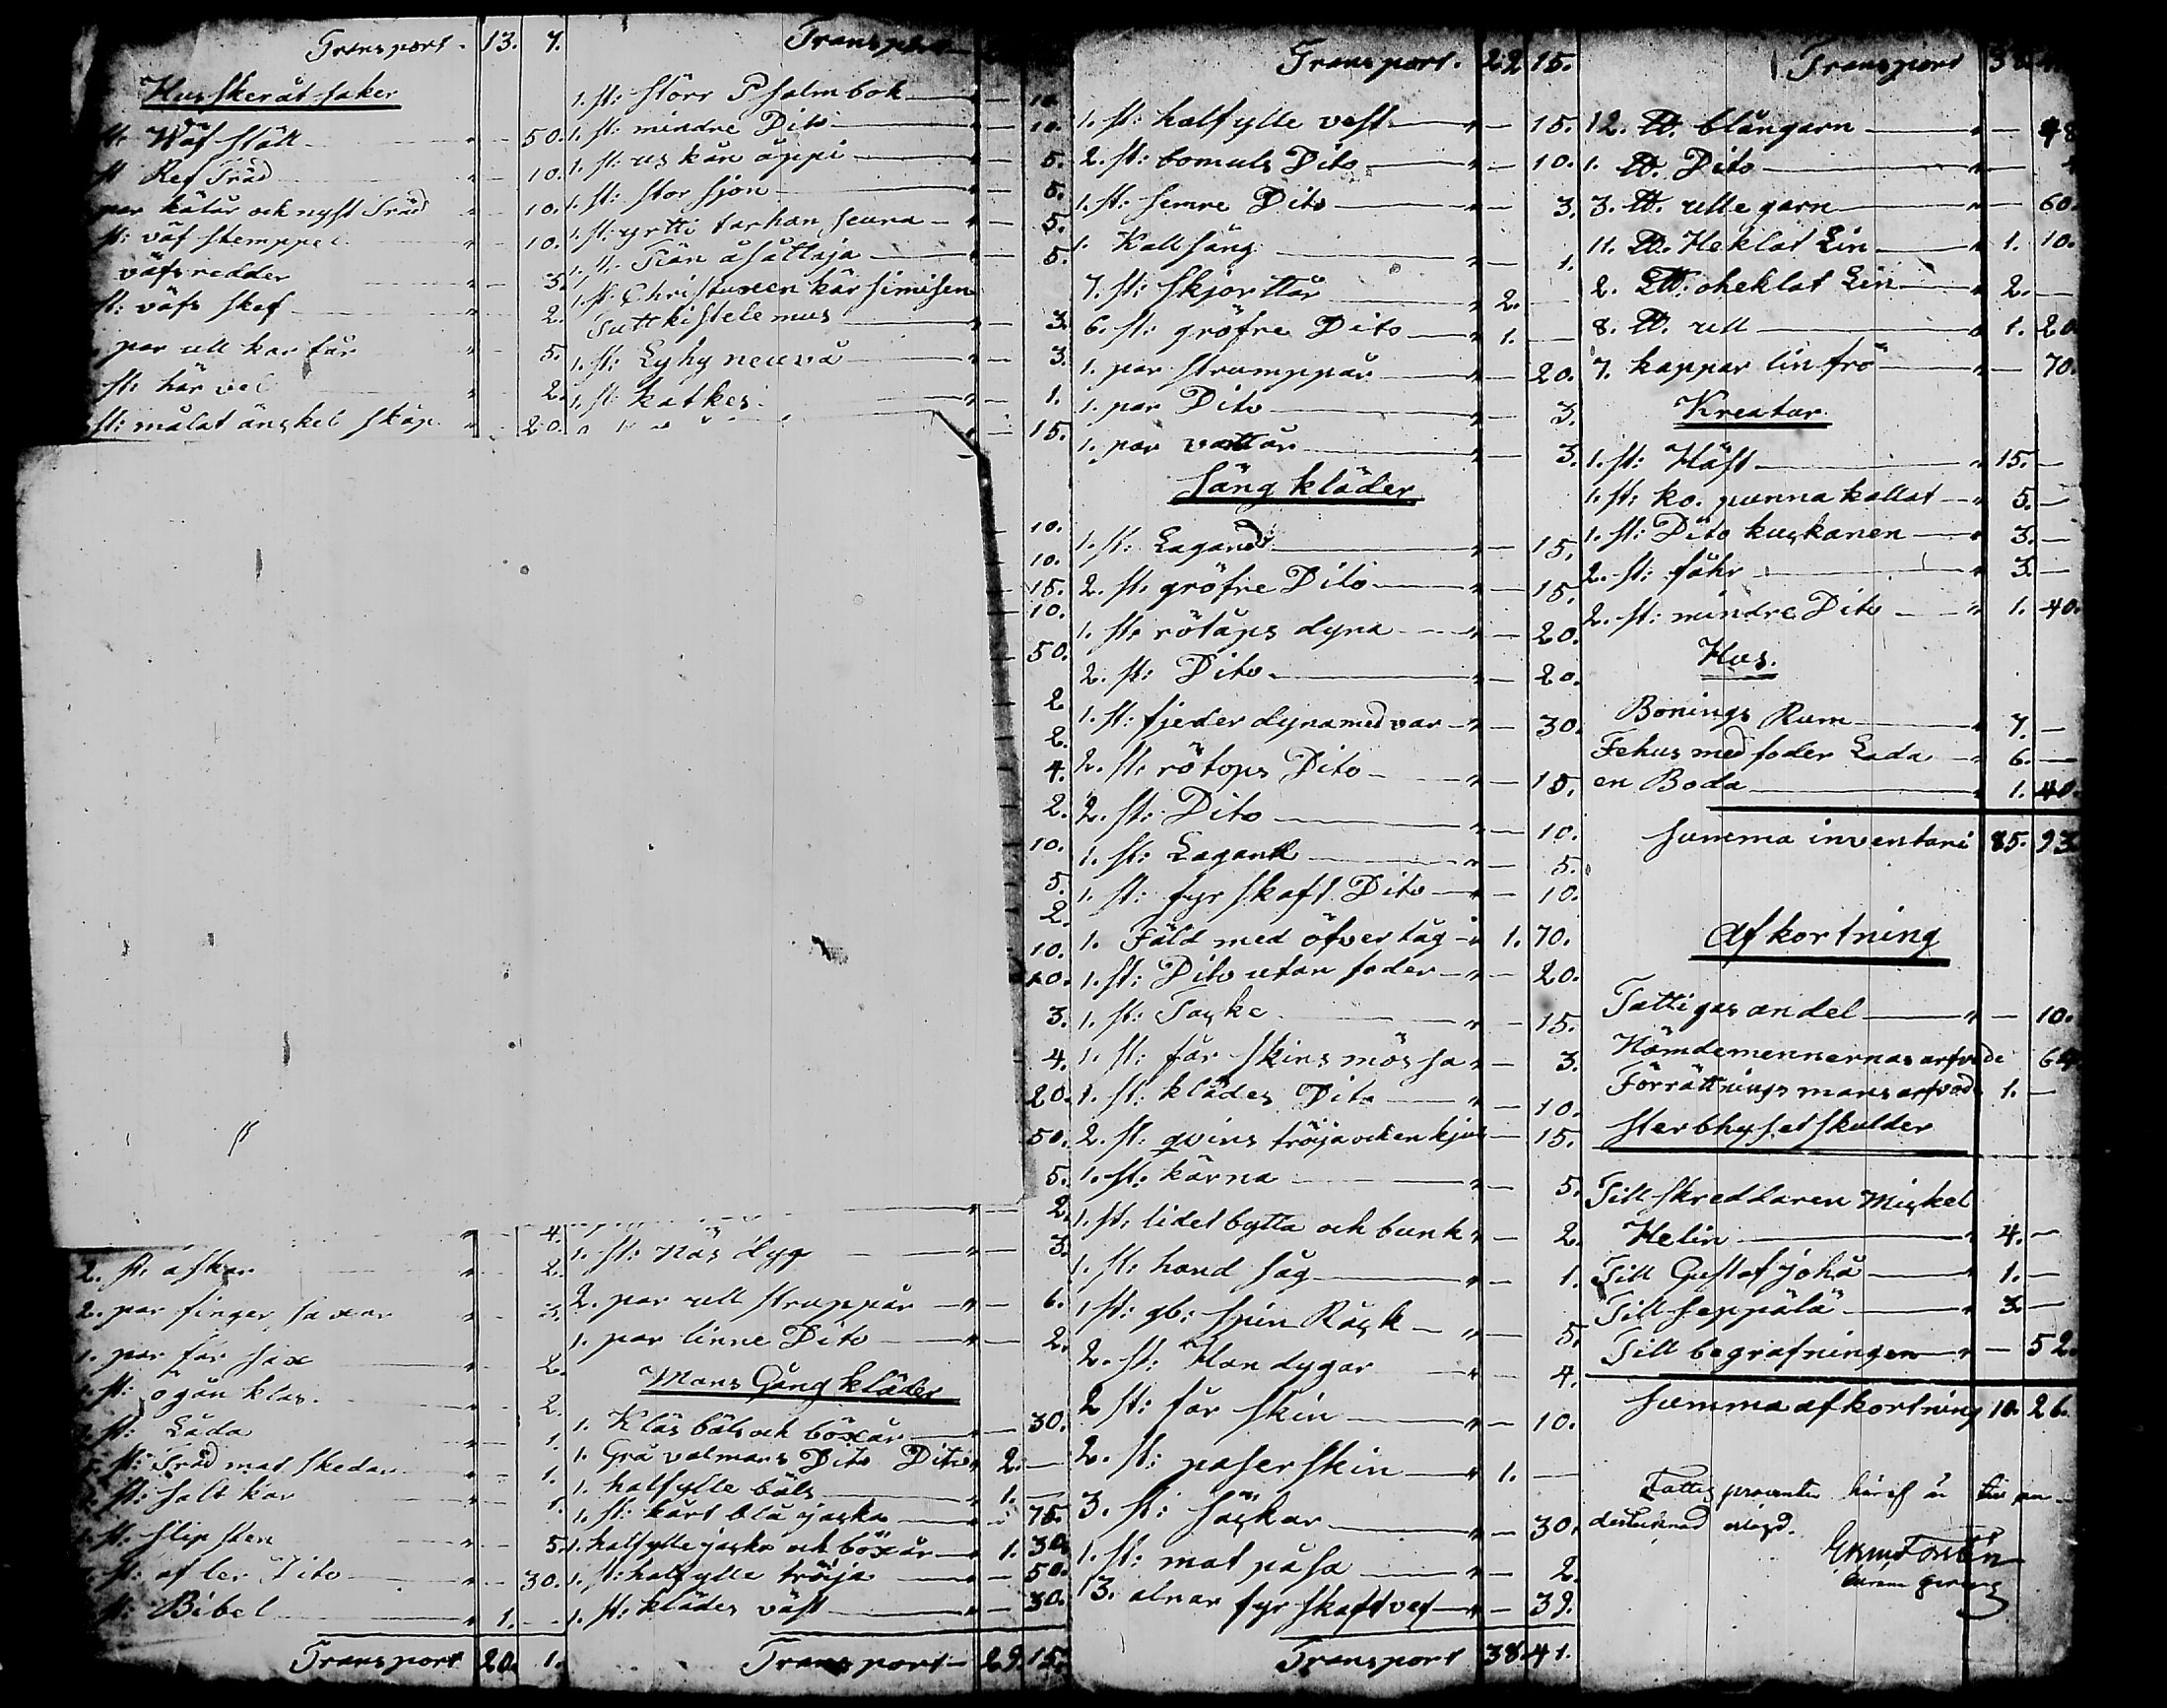 Transport 13. 7.
Husskeråt saker
st. Wäf ställ — 50.
st Ref Träd — 10.
par kåtår och nyst Träd — 10.
st: väf stemppel — 10.
väfs redder — 3.
st: väfs skef — 2.
par ull kar tår — 5.
st: här vel — 2.
st: målat änskel skåp — 20.
4.
2. st. askar — 2.
2. par finger saxar — 3.
1. par får sax — 2.
1. st: ögån klas. — 2.
st: Låda — 1.
st: Träd mat skedar — 1.
st: salt kar — 1.
st: slip sten — 5.
st: af ler Dito — 30.
st: Bibel — 1. —
Transport 20. 1.
Transport
1. st: störr Psalmbok — 10.
1. st: mindre Dito — 10.
1. st: us kån åppi — 5.
1. st: stor sjon — 5.
1. st: yrtti tarhan seura — 5.
1. st. Tiän åsåttaja — 5.
1. st: Christuxen kär simisen
Sutt kistelemus — 3.
1. st: Lyhy neuvå — 3.
1. st: katkes — 1.
15.
10.
10.
15.
10.
50.
2.
2.
4.
2.
10.
5.
2.
10.
10.
3.
4.
20.
50.
5.
2.
1. st: näs dyg — 3.
2. par ull struppår — 6.
1. par linne Dito — 2.
Mans Gång kläder
1. Kläs båls och böxår — 30.
1. Grå valmans Dito Dito 2. —
1. halfylle båls — 1. —
1. st: kårt blå jacka — 75.
1. halfylle jacka och böxår — 1. 30.
1. st: halfylle tröija — 50.
1. st: klädes väst — 30.
Transport — 29. 15.
Transport. 22 15.
1. st: halfylle vest — 15.
2. st: bomuls Dito — 10.
1. st: semre Dito — 3.
1. Kall säng — 1.
7. st: skjorttår — 2. —
6. st: gröfre Dito — 1. —
1. par strumppår — 20.
1. par Dito — 3.
1. par vattår — 3.
Säng kläder
1. st: Lagand — 15.
2. st. gröfre Dito — 15.
1. st. rötåps dyna — 20.
2. st: Dito — 20.
1. st: fjeder dyna med var — 30.
2. st. rötops Dito — 15.
2. st: Dito — 10.
1. st: Lagand — 5.
1. st: fyr skaft Dito — 10.
1. Fäld med öfver tåg — 1. 70.
1. st: Dito utan foder — 20.
1. st: Tacke — 15.
1. st: får skins mössa — 3.
1. st: klädes Dito — 10.
2. st: qvins tröja och en kjol — 15.
1. st: kärna — 5.
1. st. lidel bytta och bunk — 2.
1. st: hand såg — 1.
1 st: gb: spin Råck — 5.
2. st: Han dygar — 4.
2 st: får skin — 10.
2. st: paserskin — 1. —
3. st: säckar — 30.
1. st: mat påsa — 2.
13. alnar fyr skaft vef — 39.
Transport 38. 41.
Transport 38
12. ℔. blångarn — 48
1. ℔. Dito —
3. ℔. ulle garn — 60.
11. ℔. Heklat Lin — 1. 10.
2. L℔. oheklat Lin — 2. —
8. ℔. ull — 1. 20
7. kappar lin frö — 70.
Kreatur
1. st: Häst — 15. —
1. st: ko. punna kallat — 5. —
1. st: Dito kuckanen — 3. —
2. st: fåhr — 3. —
2. st: mindre Dito — 1. 40.
Hus.
Bonings Rum — 7. —
Fehus med foder Lada — 6. —
en Boda — 1. 40.
Summa inventari 85. 93
Afkortning
Fattigas andel — 10.
Nämdemennernas arfvode 64
Förrättnings mans arfvode 1. —
Sterbhuset skulder
Till skreddaren Mickel
Helin — 4. —
Till Gustaf Johå — 1. —
Till Seppälä — 3. —
Till begrafningen — 52.
Summa afkortning 10. 26.
Fattig procenter häraf är